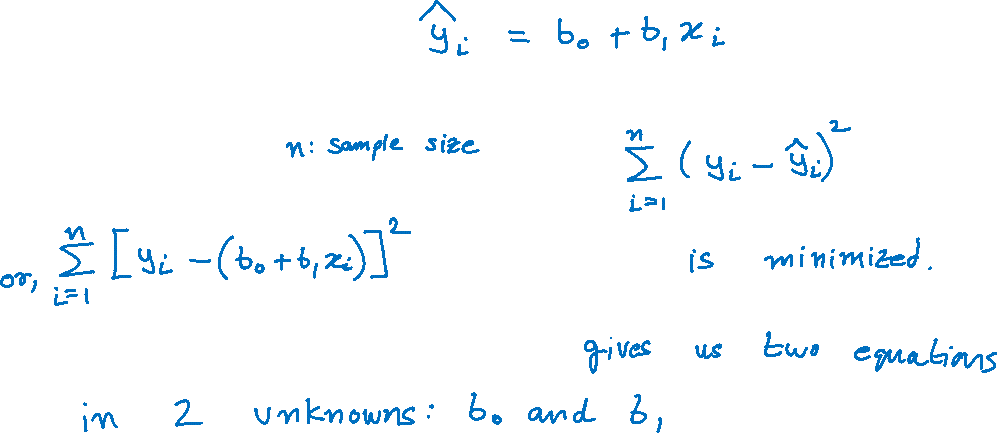 ŷᵢ = b₀ + b₁xᵢ
n: sample size ∑ᵢ₌₁ⁿ (yᵢ − ŷᵢ)²
or, ∑ᵢ₌₁ⁿ [yᵢ − (b₀ + b₁xᵢ)]² is minimized.
gives us two equations
in 2 unknowns: b₀ and b₁